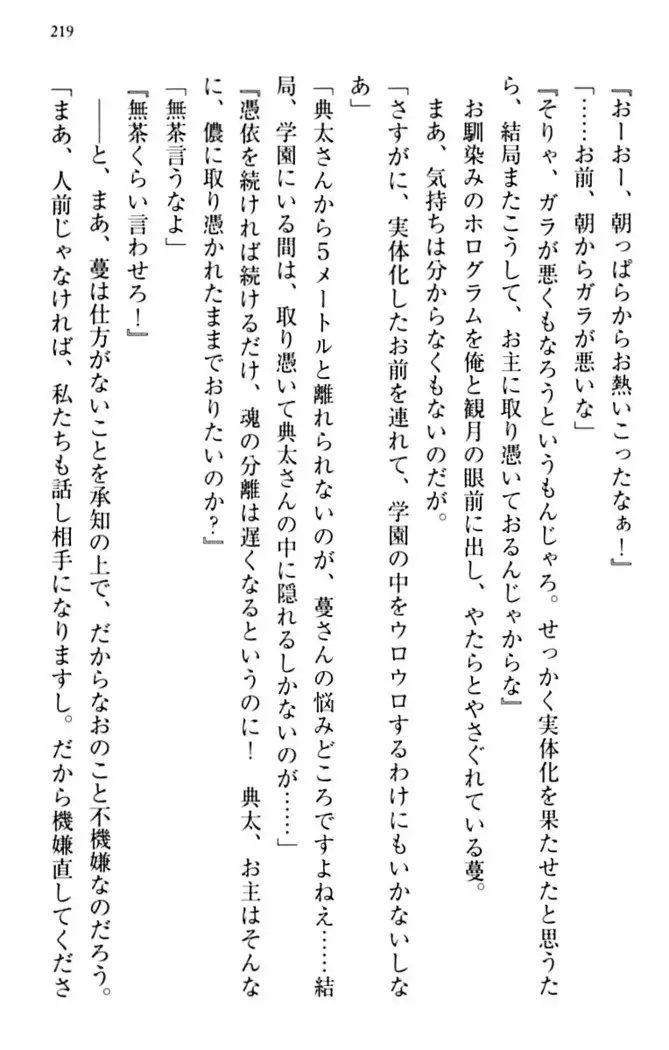 219
『おーおー、朝っぱらからお熱いこったなぁ！』
「……お前、朝からガラが悪いな」
『そりゃ、ガラが悪くもなろうというもんじゃろ。せっかく実体化を果たせたと思うた
ら、結局またこうして、お主に取り憑いておるんじゃからな』
お馴染みのホログラムを俺と観月の眼前に出し、やたらとやさぐれている蔓。
まあ、気持ちは分からなくもないのだが。
「さすがに、実体化したお前を連れて、学園の中をウロウロするわけにもいかないしな
あ」
「典太さんから５メートルと離れられないのが、蔓さんの悩みどころですよねえ……結
局、学園にいる間は、取り憑いて典太さんの中に隠れるしかないのが……」
『憑依を続ければ続けるだけ、魂の分離は遅くなるというのに！　典太、お主はそんな
に、儂に取り憑かれたままでおりたいのか？』
「無茶言うなよ」
『無茶くらい言わせろ！』
――と、まあ、蔓は仕方がないことを承知の上で、だからなおのこと不機嫌なのだろう。
「まあ、人前じゃなければ、私たちも話し相手になりますし。だから機嫌直してくださ